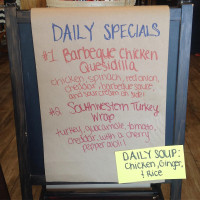 DAILY SPECIALS
#1 Barbeque Chicken
Quesidilla
chicken, spinach, red onion,
cheddar, barbeque sauce,
and sour cream on side!
#2 Southwestern Turkey
Wrap
turkey, guacamole, tomato,
cheddar, with a cherry
pepper aioli!
DAILY SOUP:
Chicken, Ginger,
& Rice